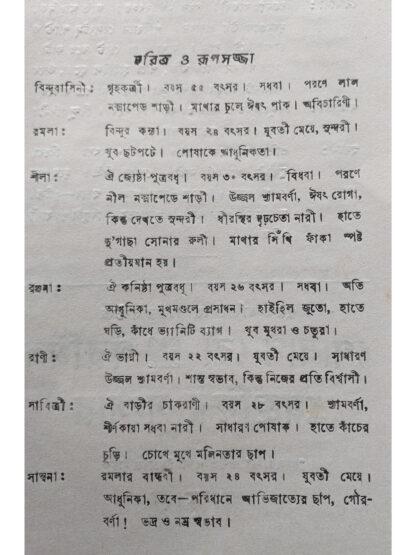 চরিত্র ও রূপসজ্জা
বিন্দুবাসিনী : গৃহকর্ত্রী। বয়স ৫৫ বৎসর। সধবা। পরণে লাল
নক্সাপেড় শাড়ী। মাথার চুলে ঈষৎ পাক। অবিচারিণী।
রমলা : বিন্দুর কন্যা। বয়স ২৪ বৎসর। যুবতী মেয়ে, সুন্দরী।
খুব ছটপটে। পোষাকে আধুনিকতা।
শীলা : ঐ জ্যেষ্ঠা পুত্রবধূ। বয়স ৩০ বৎসর। বিধবা। পরণে
নীল নক্সাপেড় শাড়ী। উজ্জ্বল শ্যামবর্ণা, ঈষৎ রোগা,
কিন্তু দেখতে সুন্দরী। ধীরস্থির দৃঢ়চেতা নারী। হাতে
দু'গাছা সোনার রুলী। মাথার সিঁথি ফাঁকা স্পষ্ট
প্রতীয়মান হয়।
রঞ্জনা : ঐ কনিষ্ঠা পুত্রবধূ। বয়স ২৬ বৎসর। সধবা। অতি
আধুনিকা, মুখমণ্ডলে প্রসাধন। হাইহিল জুতো, হাতে
ঘড়ি, কাঁধে ভ্যানিটি ব্যাগ। খুব মুখরা ও চতুরা।
রাণী : ঐ ভাগ্নী। বয়স ২২ বৎসর। যুবতী মেয়ে। সাধারণ
উজ্জ্বল শ্যামবর্ণা। শান্ত স্বভাব, কিন্তু নিজের প্রতি বিশ্বাসী।
সাবিত্রী : ঐ বাড়ীর চাকরাণী। বয়স ২৮ বৎসর। শ্যামবর্ণা,
শীর্ণকায়া সধবা নারী। সাধারণ পোষাক। হাতে কাঁচের
চুড়ি। চোখে মুখে মলিনতার ছাপ।
সান্ত্বনা : রমলার বান্ধবী। বয়স ২৪ বৎসর। যুবতী মেয়ে।
আধুনিকা, তবে—পরিধানে আভিজাত্যের ছাপ, গৌর-
বর্ণা! ভদ্র ও নম্র স্বভাব।